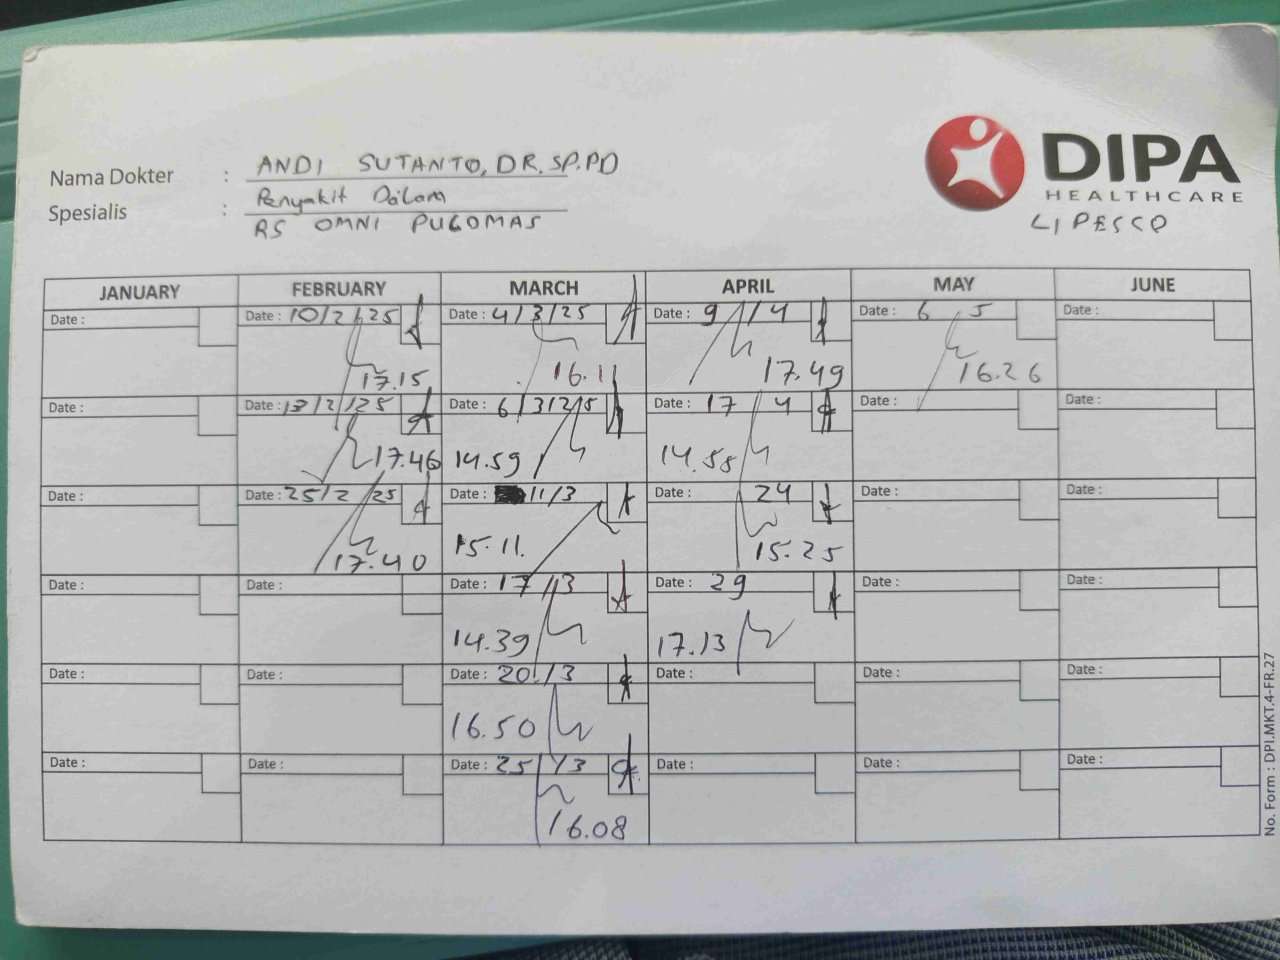 Nama Dokter : ANDI SUTANTO, DR. SP.PD
Spesialis : Penyakit Dalam
RS OMNI PULOMAS
DIPA
HEALTHCARE
JANUARY FEBRUARY MARCH APRIL MAY JUNE
Date : Date : 10/2/25 Date : 4/3/25 Date : 9/4 Date : 6 5 Date :
17.15 16.11 17.49 16.26
Date : Date : 13/2/25 Date : 6/3/25 Date : 17 4 Date : Date :
17.46 14.59 14.58
Date : Date : 25/2 25 Date : 11/3 Date : 24 Date : Date :
17.40 15.11. 15.25
Date : Date : Date : 17/3 Date : 29 Date : Date :
14.39 17.13
Date : Date : Date : 20/3 Date : Date : Date :
16.50
Date : Date : Date : 25/3 Date : Date : Date :
16.08
No. Form : DPI.MKT.4-FR.27